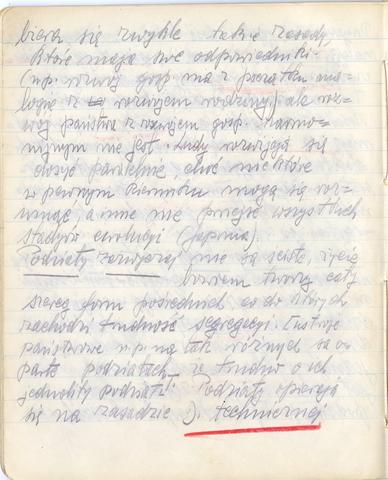 biera się zwykle takie zasady,
które mają swe odpowiedniki
(np. rozwój gosp. ma z początku ana=
logię z rozwojem rodziny) ale roz=
wój państwa z rozwojem gosp. harmo=
nijnym nie jest. Ludy rozwijają się
dosyć paralelnie, choć niektóre
w pewnym kierunku mogą się roz=
winąć, a inne nie przejść wszystkich
stadyów ewolucji (Japonia).
Podziały zazwyczaj nie są ścisłe, życie
bowiem tworzy cały
szereg form pośrednich co do których
zachodzi trudność segregacji. Ustroje
państwowe n.p. na tak różnych są o=
parte podziałach, że trudno o ich
jednolity podział. Podziały opierają
się na zasadzie 1). technicznej